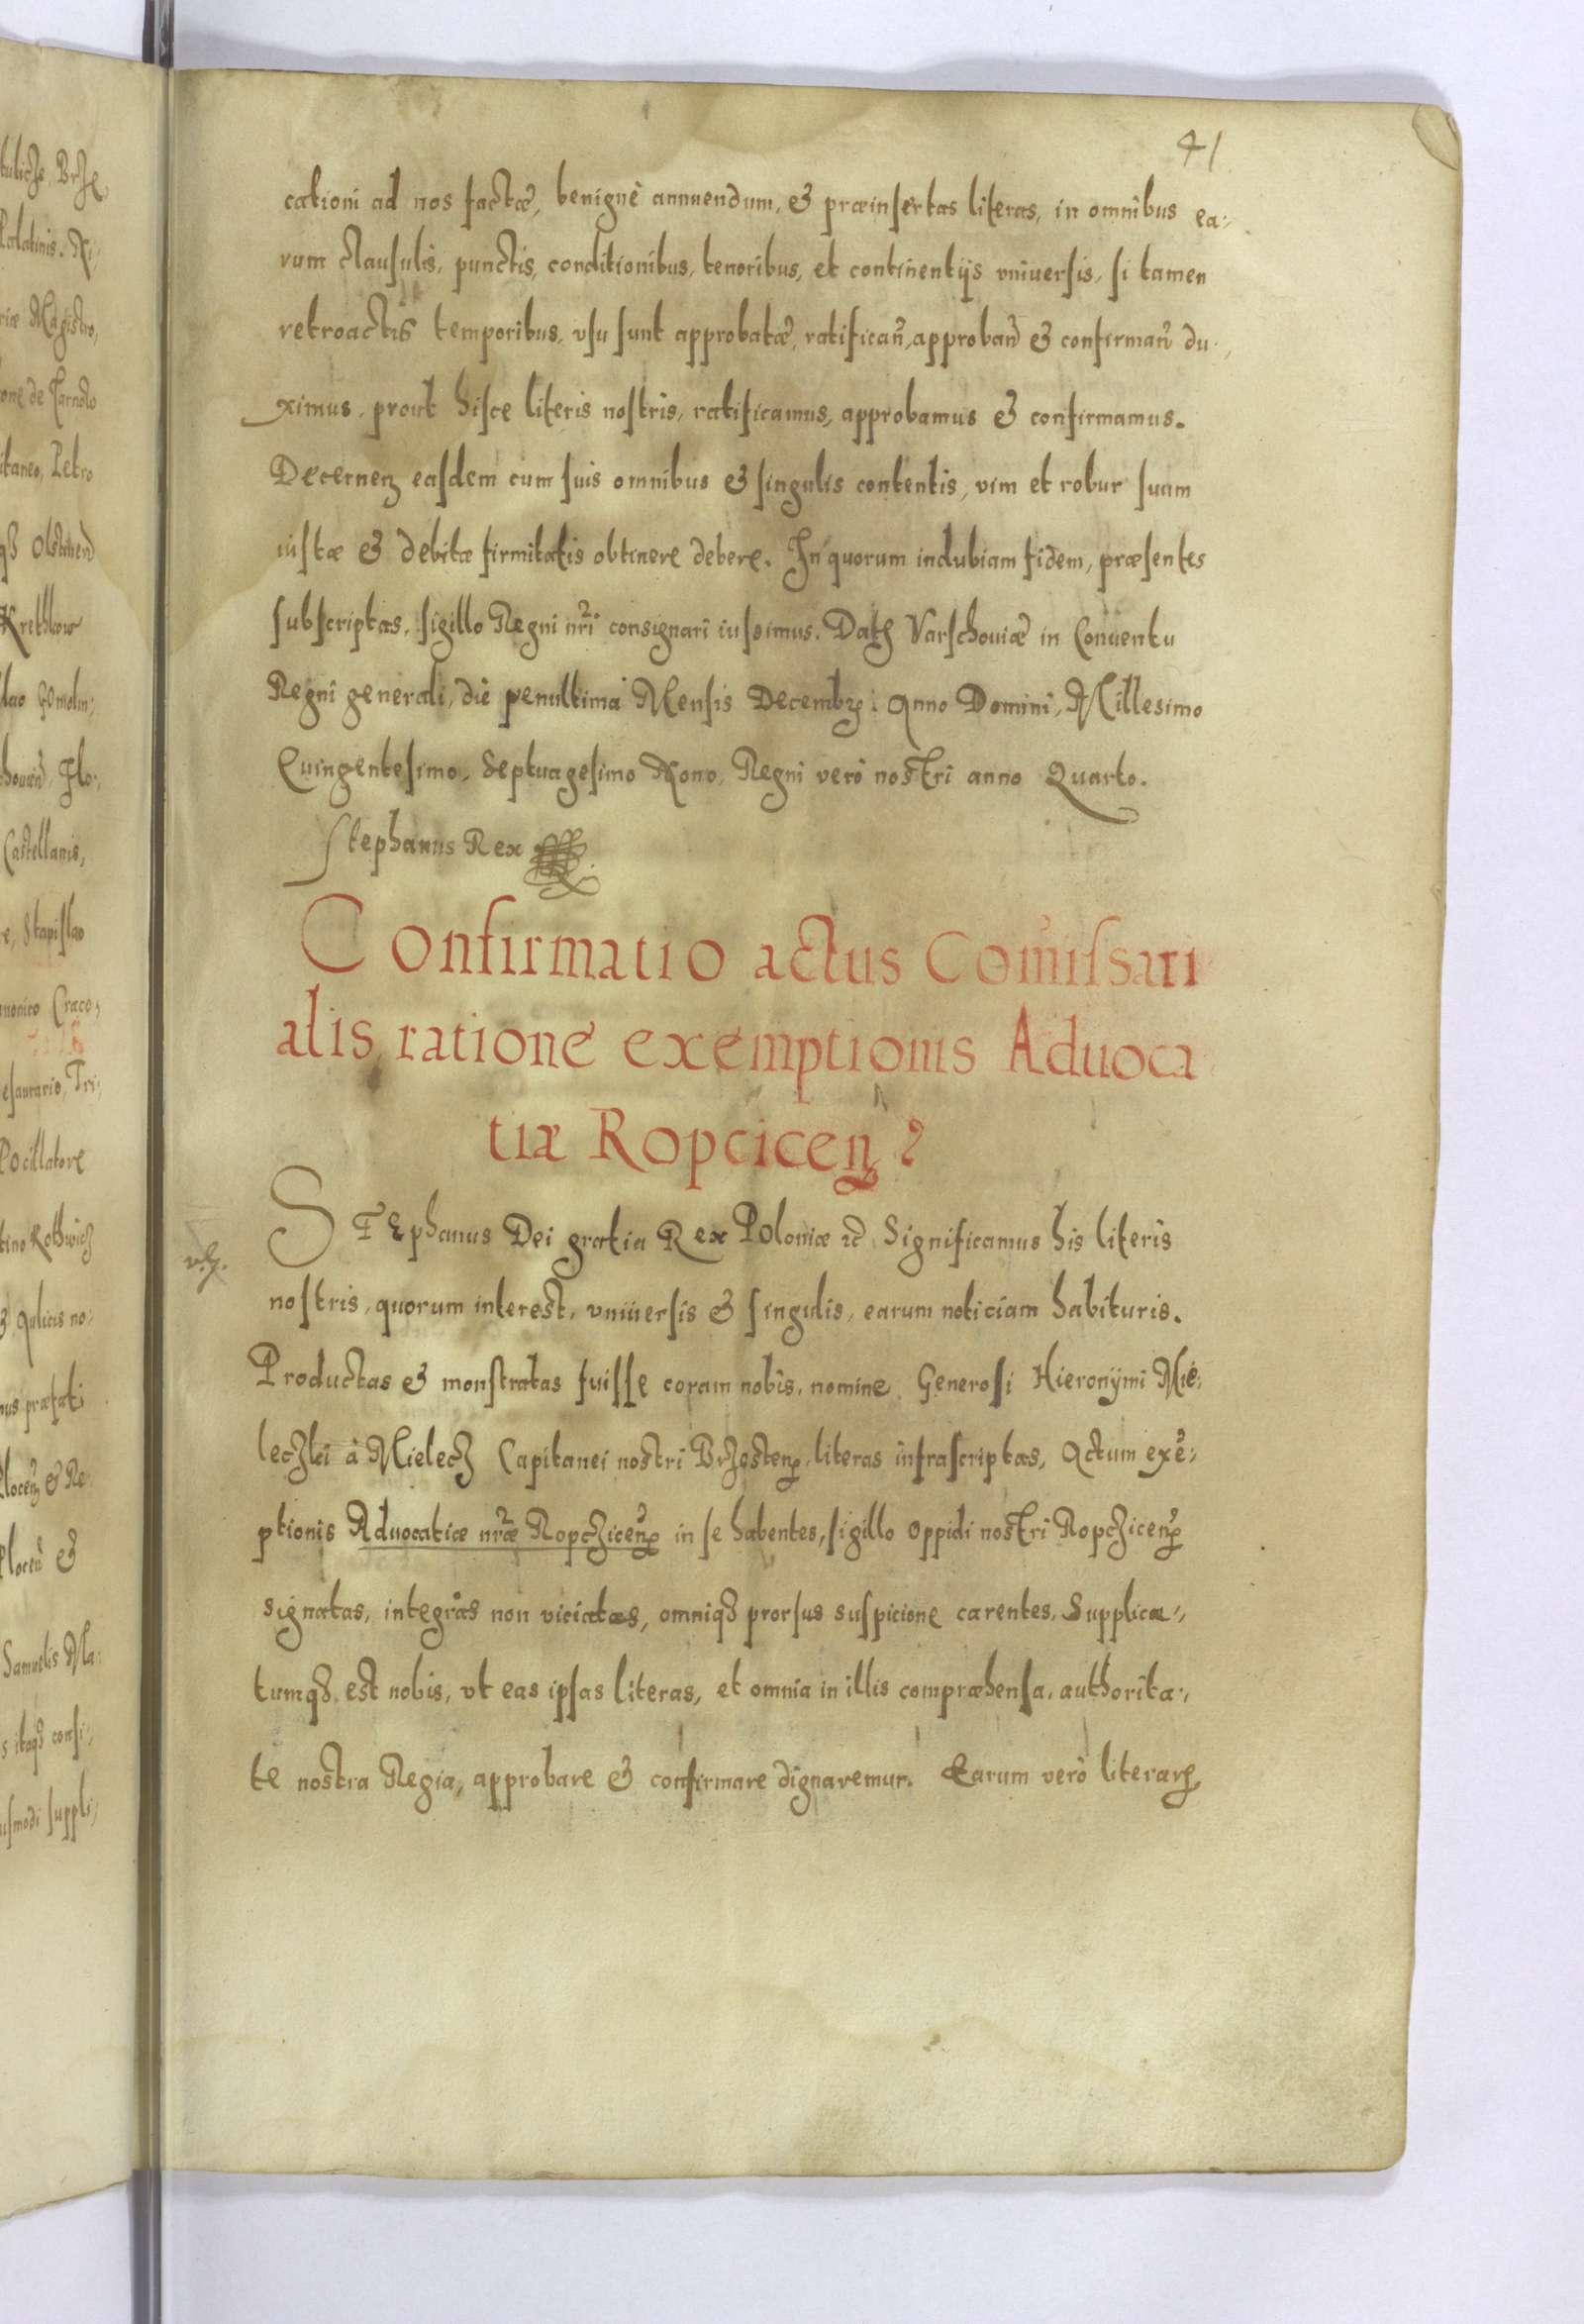 41
cationi ad nos factæ, benignè annuendum, & præinsertas literas, in omnibus ea-
rum clausulis, punctis, conditionibus, tenoribus, et continentijs vniuersis, si tamen
retroactis temporibus, vsu sunt approbatæ, ratifican̄, approban̄ & confirman̄ du-
ximus, prout hisce literis nostris, ratificamus, approbamus & confirmamus.
Decernen̄ easdem cum suis omnibus & singulis contentis, vim et robur suum
iustæ & debitæ firmitatis obtinere debere. In quorum indubiam fidem, præsentes
subscriptas, sigillo Regni nr̄i consignari iussimus. Datꝭ Varschouiæ in Conuentu
Regni generali, die penultima Mensis Decembrꝭ: Anno Domini, Millesimo
Quingentesimo, Septuagesimo Nono, Regni verò nostri anno Quarto.
Stephanus Rex
Confirmatio actus Com̄issari
alis ratione exemptionis Aduoca
tiæ Ropcicen̄
STEphanus Dei gratia Rex Poloniæ &c Significamus his literis
nostris, quorum interest, vniuersis & singulis, earum noticiam habituris.
Productas & monstratas fuisse coram nobis, nomine Generosi Hieronymi Mie-
leczki à Mielecz Capitanei nostri Brzosten̄, literas infrascriptas, Actum exē-
ptionis Aduocatiæ nr̄æ Ropczicen̄ in se habentes, sigillo oppidi nostri Ropczicen̄
signatas, integras non viciatas, omniqꝫ prorsus suspicione carentes, Supplica-
tumqꝫ est nobis, vt eas ipsas literas, et omnia in illis compræhensa, authorita-
te nostra Regia, approbare & confirmare dignaremur. Earum verò literarꝝ